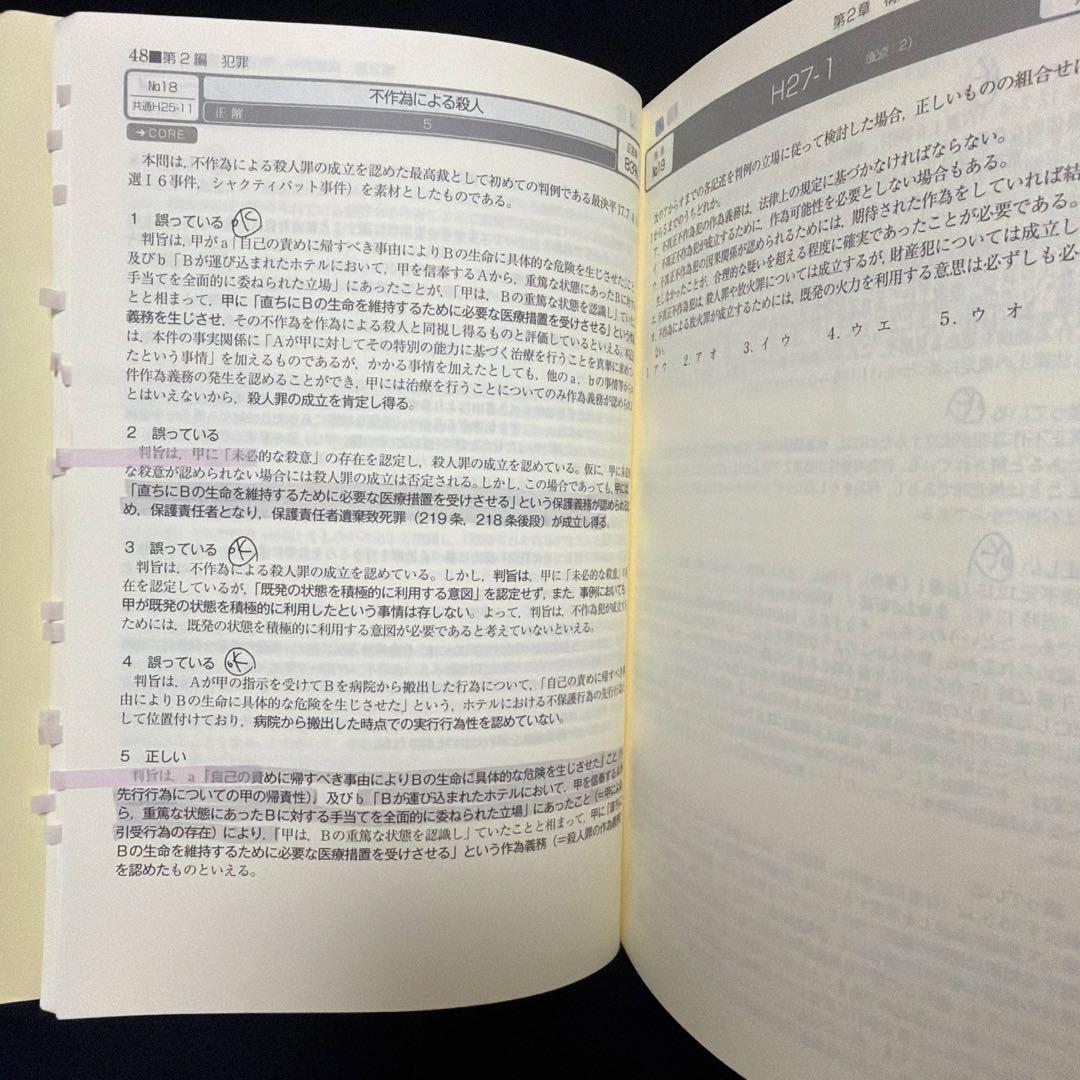 48■第2編 犯罪
No18
共通H25-11
不作為による殺人
正解
5
83%
→CORE
本問は,不作為による殺人罪の成立を認めた最高裁として初めての判例である最決平17.7.4
選Ⅰ6事件,シャクティパット事件)を素材としたものである。
1 誤っている
判旨は,甲がa「自己の責めに帰すべき事由によりBの生命に具体的な危険を生じさせた」こと
及びb「Bが運び込まれたホテルにおいて,甲を信奉するAから,重篤な状態にあったBに対する
手当てを全面的に委ねられた立場」にあったことが,「甲は,Bの重篤な状態を認識し」ていたこ
とと相まって,甲に「直ちにBの生命を維持するために必要な医療措置を受けさせる」という作為
義務を生じさせ,その不作為を作為による殺人と同視し得るものと評価しているといえる。本記述
は,本件の事実関係に「Aが甲に対してその特別の能力に基づく治療を行うことを真摯に求めてい
たという事情」を加えるものであるが,かかる事情を加えたとしても,他のa,bの事情等から
件作為義務の発生を認めることができ,甲には治療を行うことについてのみ作為義務が認められる
とはいえないから,殺人罪の成立を肯定し得る。
2 誤っている
判旨は,甲に「未必的な殺意」の存在を認定し,殺人罪の成立を認めている。仮に,甲に未必的
な殺意が認められない場合には殺人罪の成立は否定される。しかし,この場合であっても,甲には
「直ちにBの生命を維持するために必要な医療措置を受けさせる」という保護義務が認められるた
め,保護責任者となり,保護責任者遺棄致死罪(219条,218条後段)が成立し得る。
3 誤っている
判旨は,不作為による殺人罪の成立を認めている。しかし,判旨は,甲に「未必的な殺意」の存
在を認定しているが,「既発の状態を積極的に利用する意図」を認定せず,また,事例においても
甲が既発の状態を積極的に利用したという事情は存しない。よって,判旨は,不作為犯が成立する
ためには,既発の状態を積極的に利用する意図が必要であると考えていないといえる。
4 誤っている
判旨は,Aが甲の指示を受けてBを病院から搬出した行為について,「自己の責めに帰すべき事
由によりBの生命に具体的な危険を生じさせた」という,ホテルにおける不保護行為の先行行為と
して位置付けており,病院から搬出した時点での実行行為性を認めていない。
5 正しい
判旨は,a「自己の責めに帰すべき事由によりBの生命に具体的な危険を生じさせた」こと(
先行行為についての甲の帰責性),及びb「Bが運び込まれたホテルにおいて,甲を信奉するAか
ら,重篤な状態にあったBに対する手当てを全面的に委ねられた立場」にあったこと(=甲による
引受行為の存在)により,「甲は,Bの重篤な状態を認識し」ていたことと相まって,甲に「直ちに
Bの生命を維持するために必要な医療措置を受けさせる」という作為義務(=殺人罪の作為義務)
を認めたものといえる。
第2章
H27-1
(配点:2)
No19
次のアからオまでの各記述を判例の立場に従って検討した場合,正しいものの組合せは
1から5までのうちどれか。
ア.不真正不作為犯の作為義務は,法律上の規定に基づかなければならない。
イ.不真正不作為犯が成立するために,作為可能性を必要としない場合もある。
ウ.不真正不作為犯の因果関係が認められるためには,期待された作為をしていれば結
生しなかったことが,合理的な疑いを超える程度に確実であったことが必要である。
エ.不真正不作為犯は,殺人罪や放火罪については成立するが,財産犯については成立し
オ.不作為による放火罪が成立するためには,既発の火力を利用する意思は必ずしも必
ない。
1.ア ウ 2.ア オ 3.イ ウ 4.ウ エ 5.ウ オ